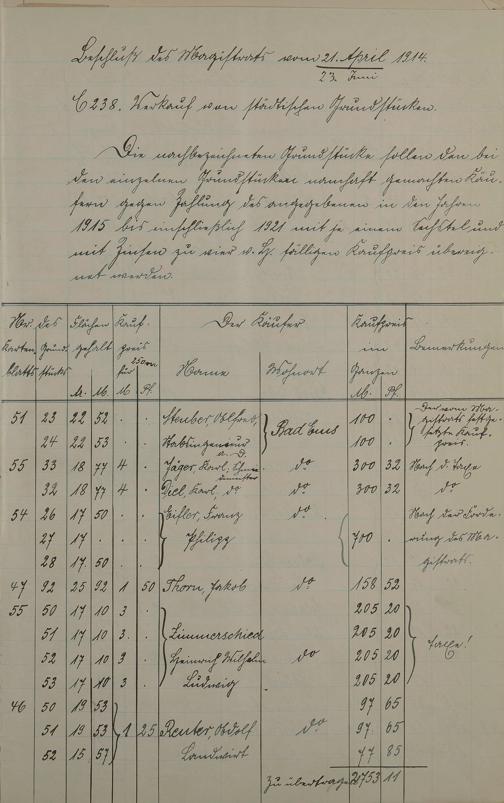 Beschluß des Magistrats vom 21. April 1914.
23. Juni
C 238. Verkauf von städtischen Grundstücken.
Die nachbezeichneten Grundstücke sollen den bei
den einzelnen Grundstücken namhaft gemachten Käu-
fern gegen Zahlung des angegebenen in den Jahren
1915 bis einschließlich 1921 mit je einem Sechstel und
mit Zinsen zu vier v. H. fälligen Kaufpreis übereig-
net werden.
Nr. des Flächen Kauf- Der Käufer Kaufpreis
Karten Grund- gehalt preis im Bemerkungen
blatts stücks für Name Wohnort Ganzen
M. Pf. M. Pf.
51 23 22 52 . . Steuber, 100 . Der vom Ma-
gistrats festge-
24 22 53 . . Bad Ems 100 . setzte Kauf-
a. D. preis.
55 33 18 77 4 . Jäger, Karl, do 300 32 Nach d. Taxe
32 18 77 4 . Diel, Karl, do do 300 32 do
54 26 17 50 . . Eifler, Franz do Nach der Forde-
27 17 . . . Philipp 700 . rung des Ma-
28 17 50 . . gistrats.
47 92 25 92 1 50 Thorn, Jakob do 158 52
55 50 17 10 3 . 205 20
51 17 10 3 . Limmerschied 205 20
52 17 10 3 . Heinrich Wilhelm do 205 20 Taxe!
53 17 10 3 . Ludwig 205 20
46 50 19 53 97 65
51 19 53 1 25 Reuter, Adolf do 97 65
52 15 57 Landwirt 77 85
Zu übertragen 2753 11